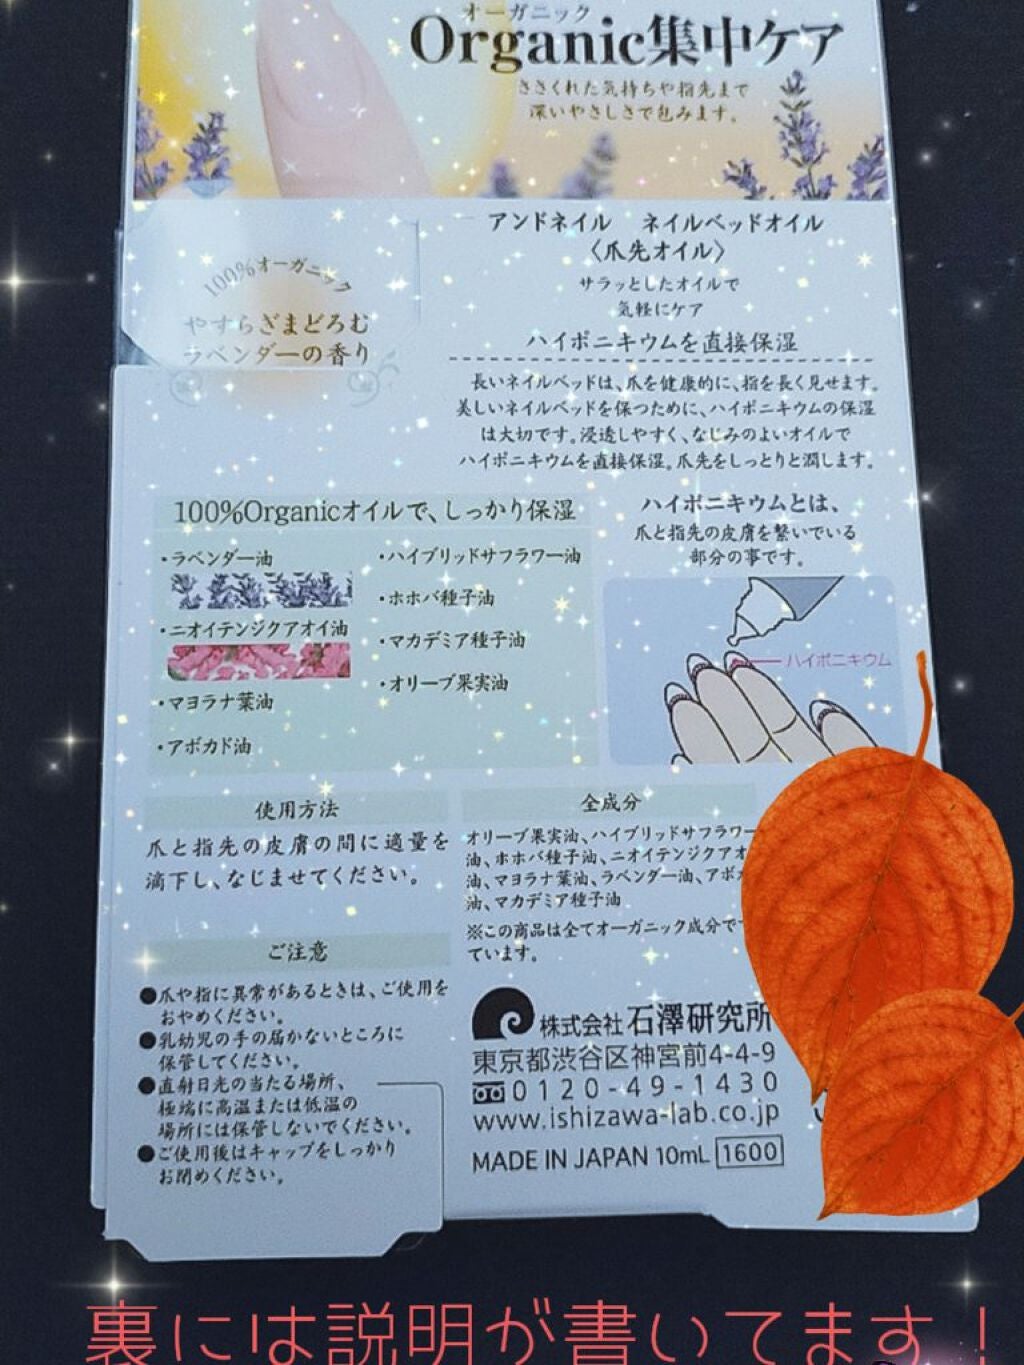 オーガニック
Organic集中ケア
ささくれた気持ちや指先まで
深いやさしさで包みます。
アンドネイル ネイルベッドオイル
〈爪先オイル〉
サラッとしたオイルで
気軽にケア
ハイポニキウムを直接保湿
100%オーガニック
やすらぎまどろむ
ラベンダーの香り
長いネイルベッドは、爪を健康的に、指を長く見せます。
美しいネイルベッドを保つために、ハイポニキウムの保湿
は大切です。浸透しやすく、なじみのよいオイルで
ハイポニキウムを直接保湿。爪先をしっとりと潤します。
100%Organicオイルで、しっかり保湿
・ラベンダー油
・ニオイテンジクアオイ油
・マヨラナ葉油
・アボカド油
・ハイブリッドサフラワー油
・ホホバ種子油
・マカデミア種子油
・オリーブ果実油
ハイポニキウムとは、
爪と指先の皮膚を繋いでいる
部分の事です。
ハイポニキウム
使用方法
爪と指先の皮膚の間に適量を
滴下し、なじませてください。
ご注意
●爪や指に異常があるときは、ご使用を
おやめください。
●乳幼児の手の届かないところに
保管してください。
●直射日光の当たる場所、
極端に高温または低温の
場所には保管しないでください。
●ご使用後はキャップをしっかり
お閉めください。
全成分
オリーブ果実油、ハイブリッドサフラワー
油、ホホバ種子油、ニオイテンジクアオ
油、マヨラナ葉油、ラベンダー油、アボ
油、マカデミア種子油
※この商品は全てオーガニック成分で
ています。
株式会社石澤研究所
東京都渋谷区神宮前4-4-9
0120-49-1430
www.ishizawa-lab.co.jp
MADE IN JAPAN 10mL 1600
裏には説明が書いてます！